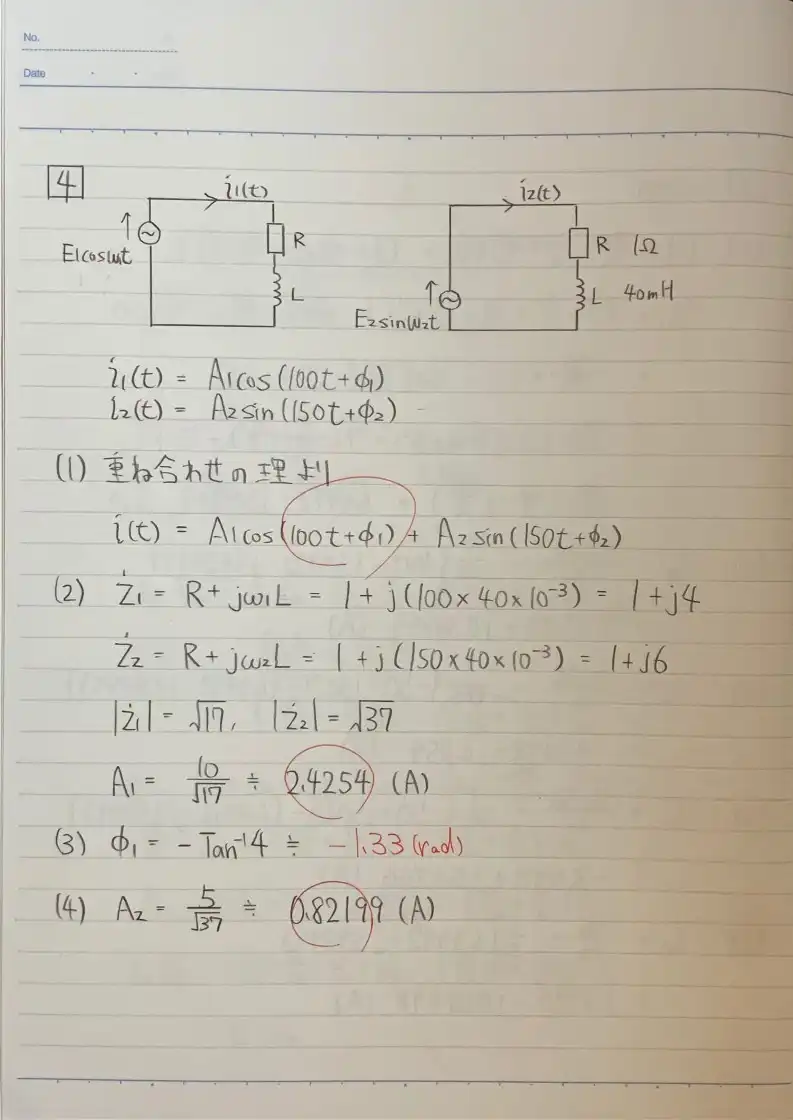 No.
Date
4
i1(t)
i2(t)
E1cosω1t
R
L
E2sinω2t
R 1Ω
L 40mH
i1(t) = A1cos(100t+φ1)
i2(t) = A2sin(150t+φ2)
(1) 重ね合わせの理より
i(t) = A1cos(100t+φ1) + A2sin(150t+φ2)
(2) Ż1 = R+jω1L = 1+j(100×40×10⁻³) = 1+j4
Ż2 = R+jω2L = 1+j(150×40×10⁻³) = 1+j6
|Ż1| = √17, |Ż2| = √37
A1 = 10/√17 ≒ 2.4254 (A)
(3) φ1 = -Tan⁻¹4 ≒ -1.33(rad)
(4) A2 = 5/√37 ≒ 0.82199 (A)